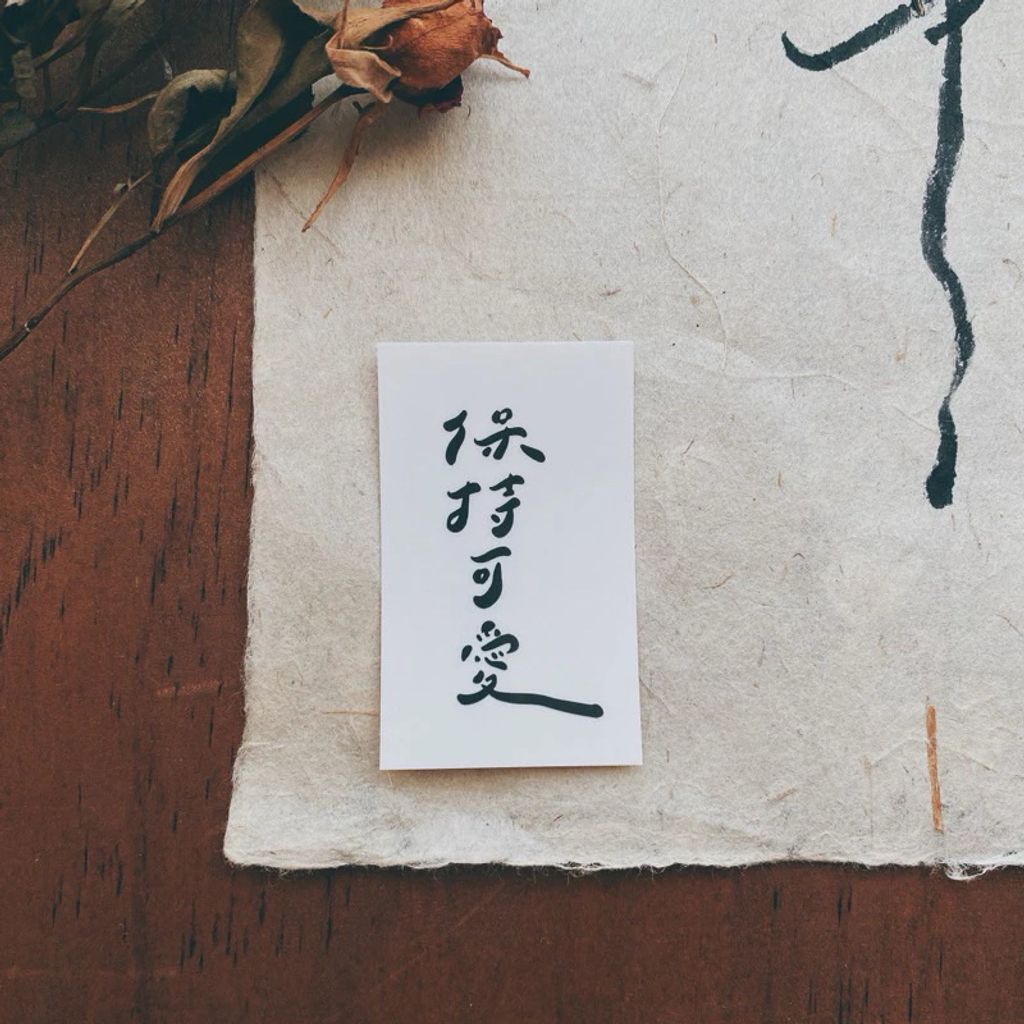 保持可愛